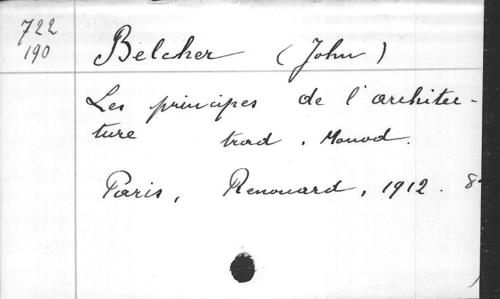 722
190
Belcher (John)
Les principes de l'architec-
ture trad. Monod.
Paris, Renouard, 1912. 8°